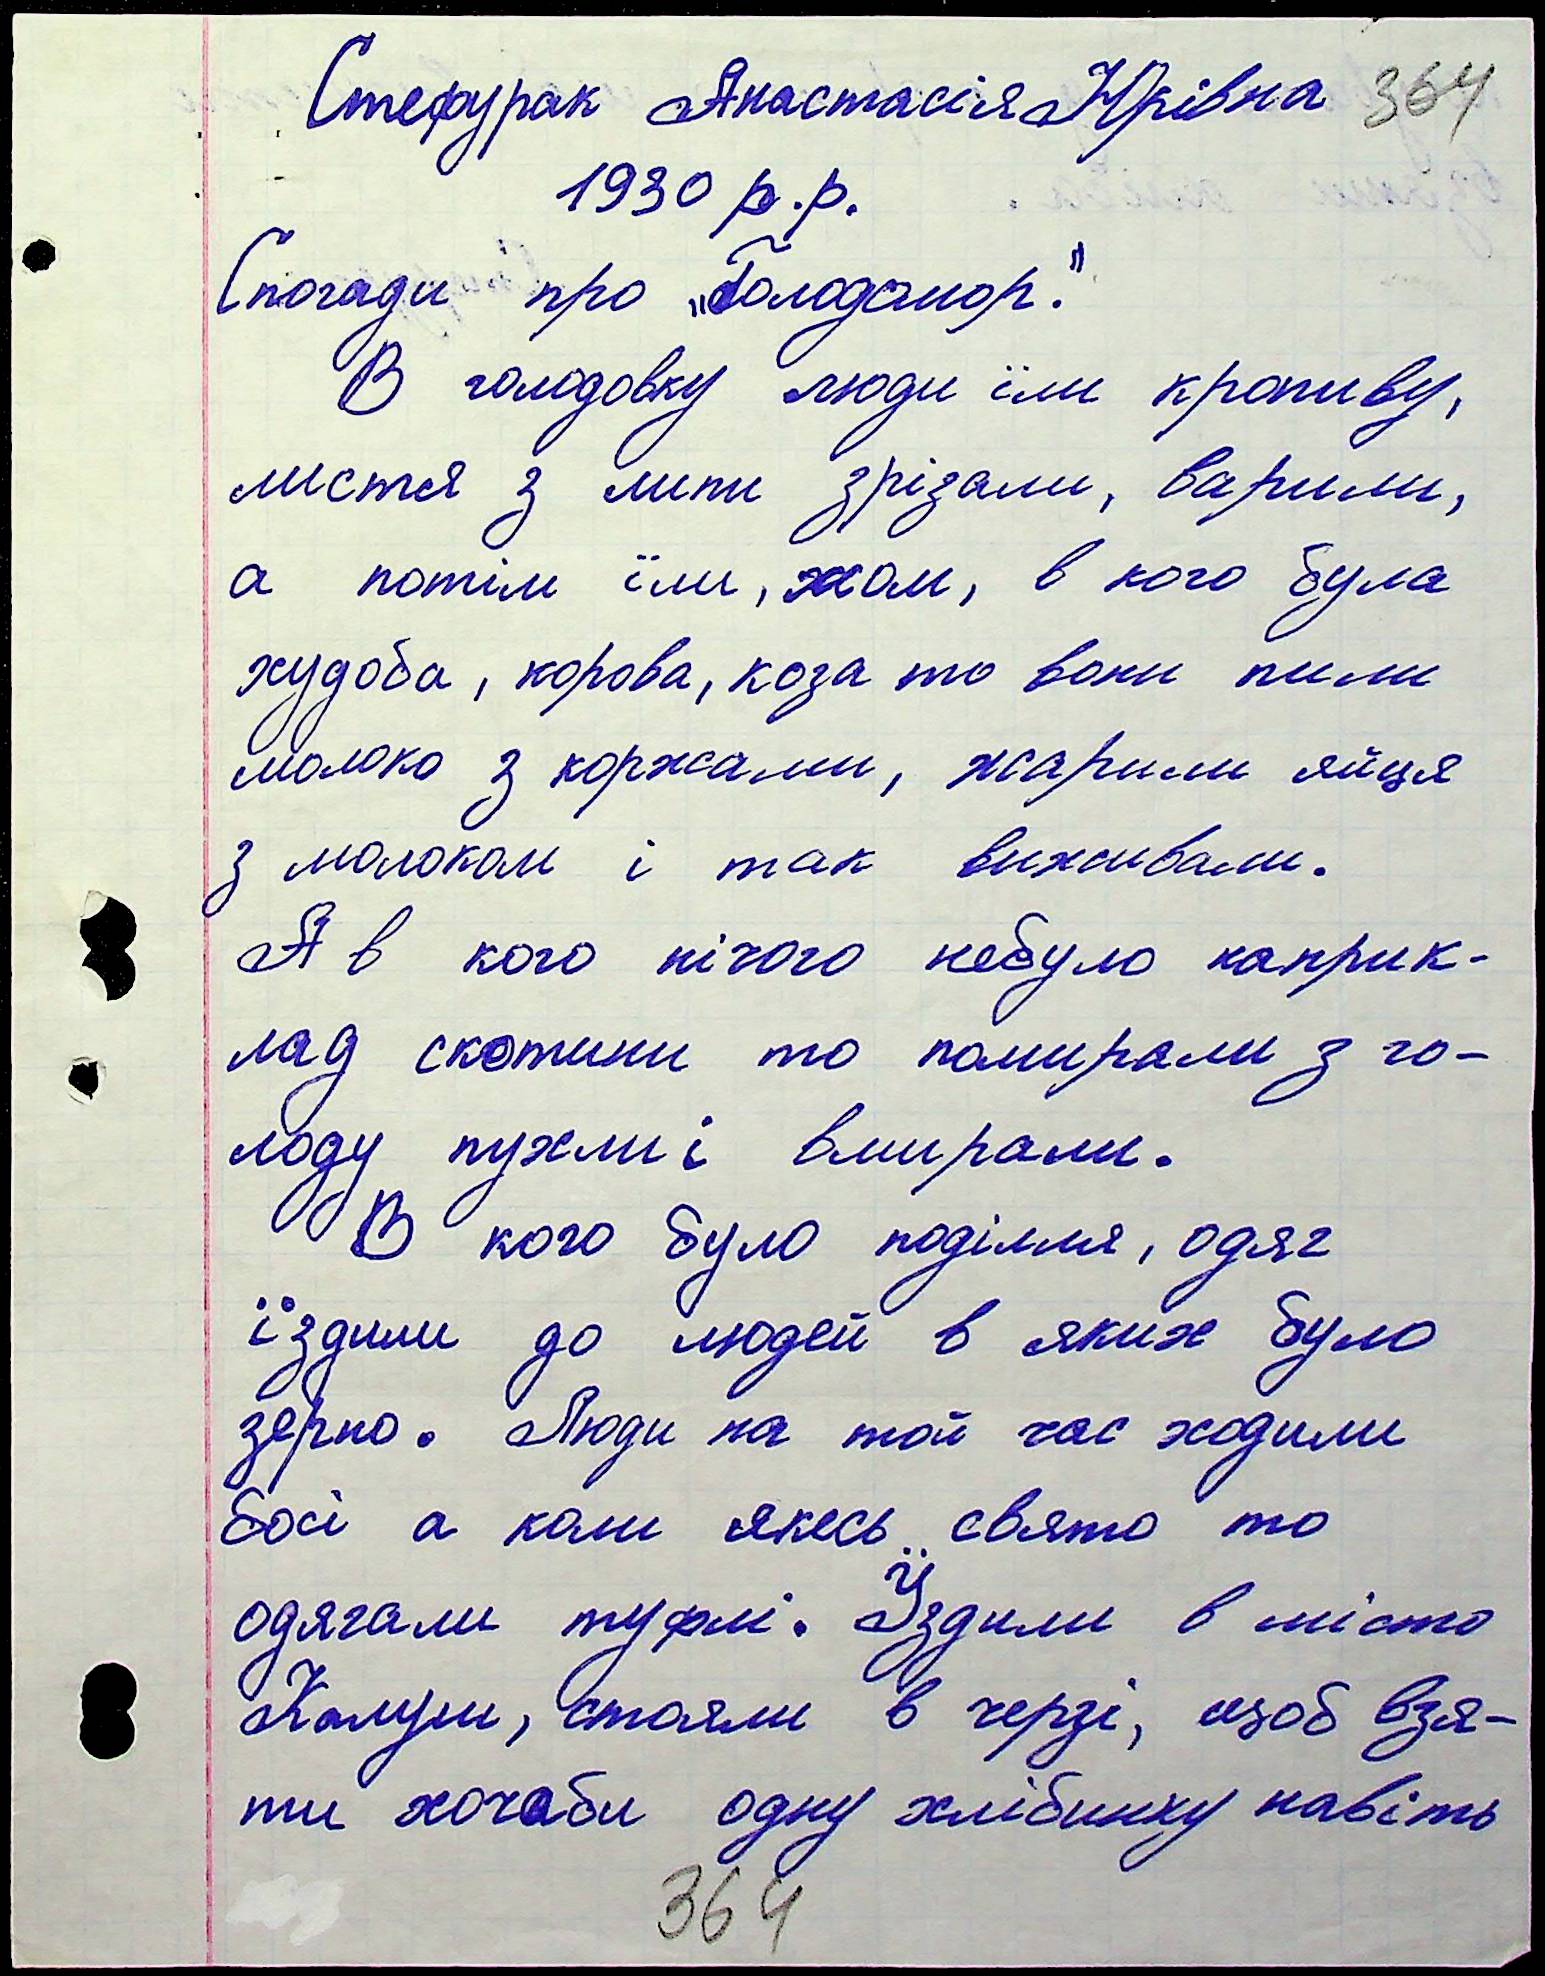 Стефурак Анастасія Юрівна 364
1930 р.р.
Спогади про „Голодомор."
В голодовку люди їли кропиву,
листя з липи зрізали, варили,
а потім їли, жом, в кого була
худоба, корова, коза то вони пили
молоко з коржами, жарили яйця
з молоком і так виживали.
А в кого нічого небуло наприк-
лад скотини то помирали з го-
лоду пухли і вмирали.
В кого було поділля, одяг
їздили до людей в яких було
зерно. Люди на той час ходили
босі а коли якесь свято то
одягали туфлі. Їздили в місто
Калуш, стояли в черзі, щоб взя-
ти хочаби одну хлібинку навіть
364